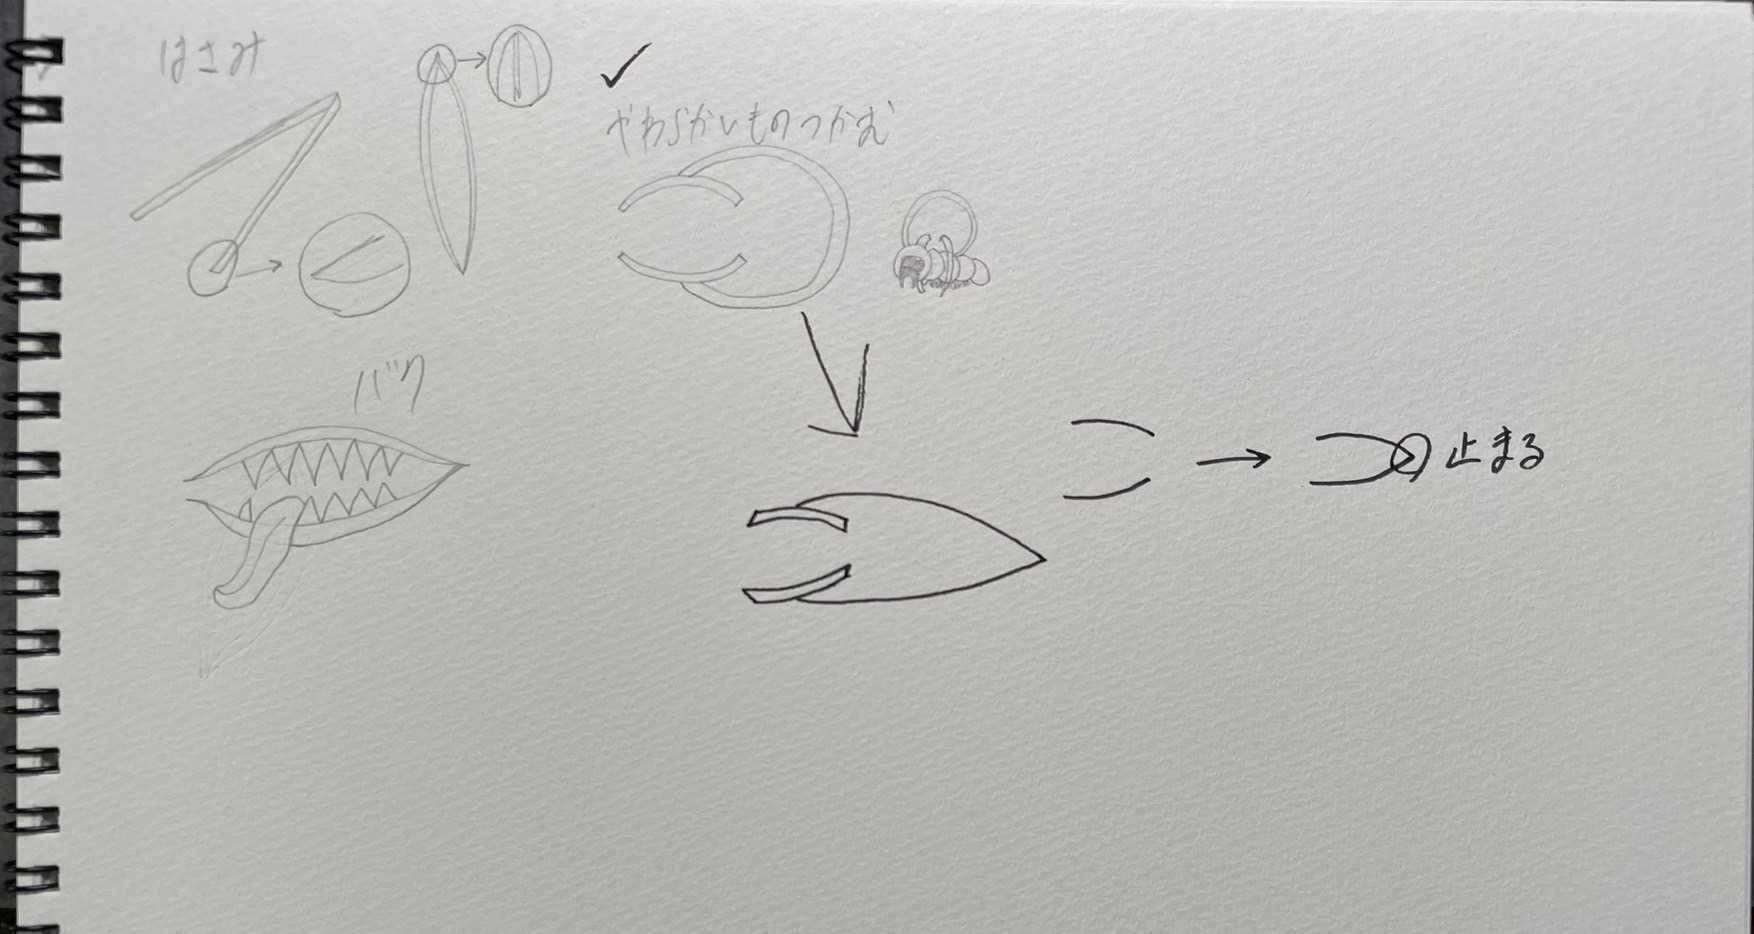 はさみ
やわらかいものつかむ
バク
止まる